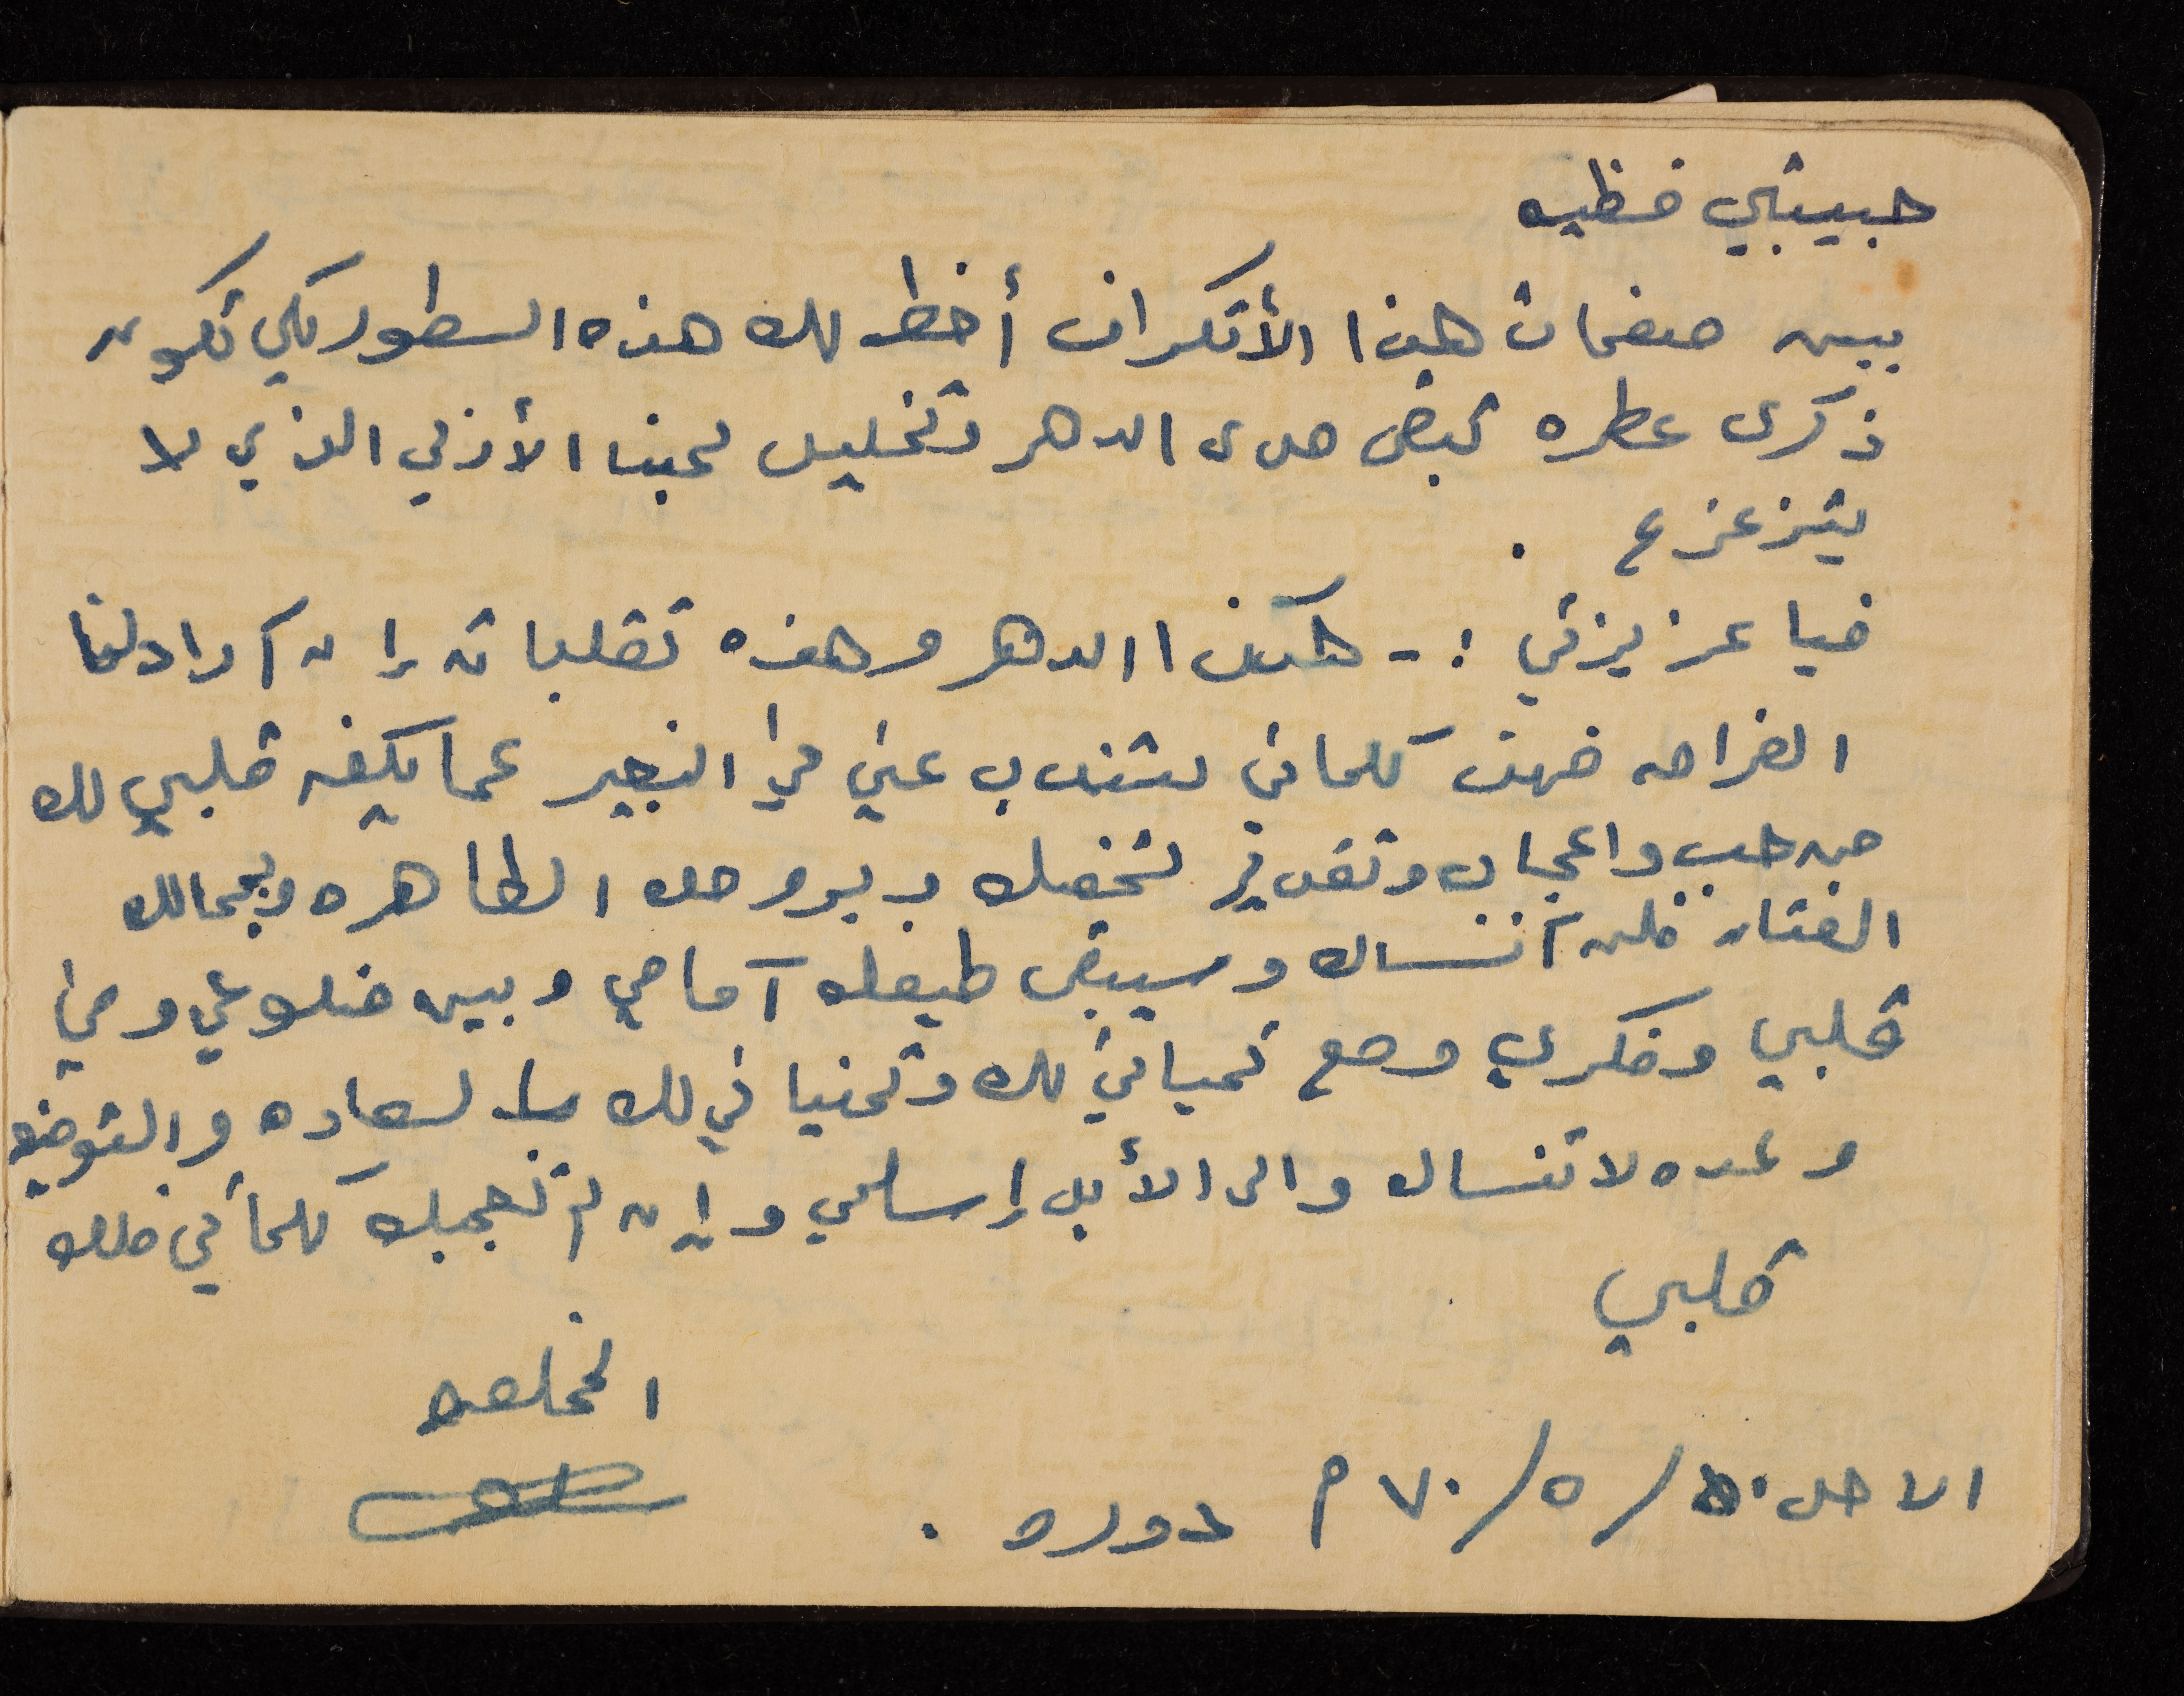 حبيبتي فظيه
بين صفحات هذا الأتكراف أخط لك هذه السطور لكي تكون
ذكرى عطره تبقى مدى الدهر وتخليل لحبنا الأزلي الذي لا
يتزعزع .
فيا عزيزتي :- هكذا الدهر وهذه تقلباته إن أراد لنا
الفراق فهذه كلماتي لتندب عني في التعبير عما يكنه قلبي لك
من حب واعجاب وتقدير لشخصك وبروحك الطاهره وبجمالك
الفتان فلن أنساك وسيبقى طيفك أمامي وبين ضلوعي وفي
قلبي وفكري ومع تحياتي لك وتمنياتي لك بالسعاده والتوفيق
وعده لا تنساك والى الأبد إسلمي وإن لم تعجبك كلماتي فلك
قلبي
المخلصه
الاحد /٥/٧٠ م دوره .